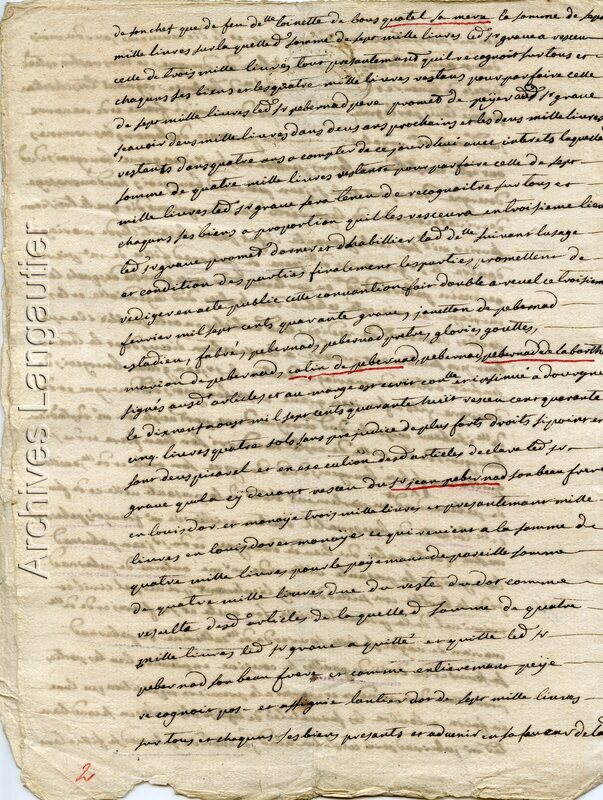 de son chef que de feu delle toinette de bousquatel sa mere la somme de sept
mille livres sur la quelle de somme de sept mille livres led sr grave a resceu
celle de trois mille livres tout presantemant quil recognoit sur tous et
chaquns ses biens et les quatre mille livres restans pour parfaire cette
de sept mille livres led sr pebernad pere promet de peÿer aud sr grave
scauoir deus mille livres dans deus ans prochains et les deus mille livres
restants dans quatre ans a compter de ce jourdhui avec interets laquelle
somme de quatre mille livres restante pour parfaire celle de sept
mille livres led sr grave sera teneu de recognoitre sur tous et
chaquns ses biens a proportion quil les resceura en troisieme lieu
led sr grave promet dorner et dhabillier lade delle suivant lusage
et condition des parties finalement les parties promettent de
rediger en acte public cette convantion fait double a revel ce troisieme
fevrier mil sept cents quarante grave, janetton de pebernad
estadieu, fabré, pebernad, pebernad pretre, glories gouttes,
marion de pebernad, catin de pebernad, pebernad, pebernad de la barthe
signés ausd articles et au marge est ecrit conlle et insinué a dourgne
le dixneuf aoust mil sept cents quarante huit resceu cent quarante
cinq livres quatre sols sans prejudice de plus forts droits si
sont deus picarel et en execution desd articles declare led sr
grave quil a cÿ devant resceu du sr jean pebernad son beau frere
en louis dor et monoÿe trois mille livres et presantemant mille
livres en louis dor et monoÿe ce qui revient a la somme de
quatre mille livres pour le paÿemant de pareille somme
de quatre mille livres due du reste du dot comme
resulta desd articles de la quelle d somme de quatre
mille livres led sr grave a quitté et quitte led sr
pebernad son beau frere et comme entieremant peÿe
recognoit pose et assigne lantier dot de sept mille livres
sur tous et chaquns ses biens presants et advenir en sa faveur de la
2
Archives Langautier